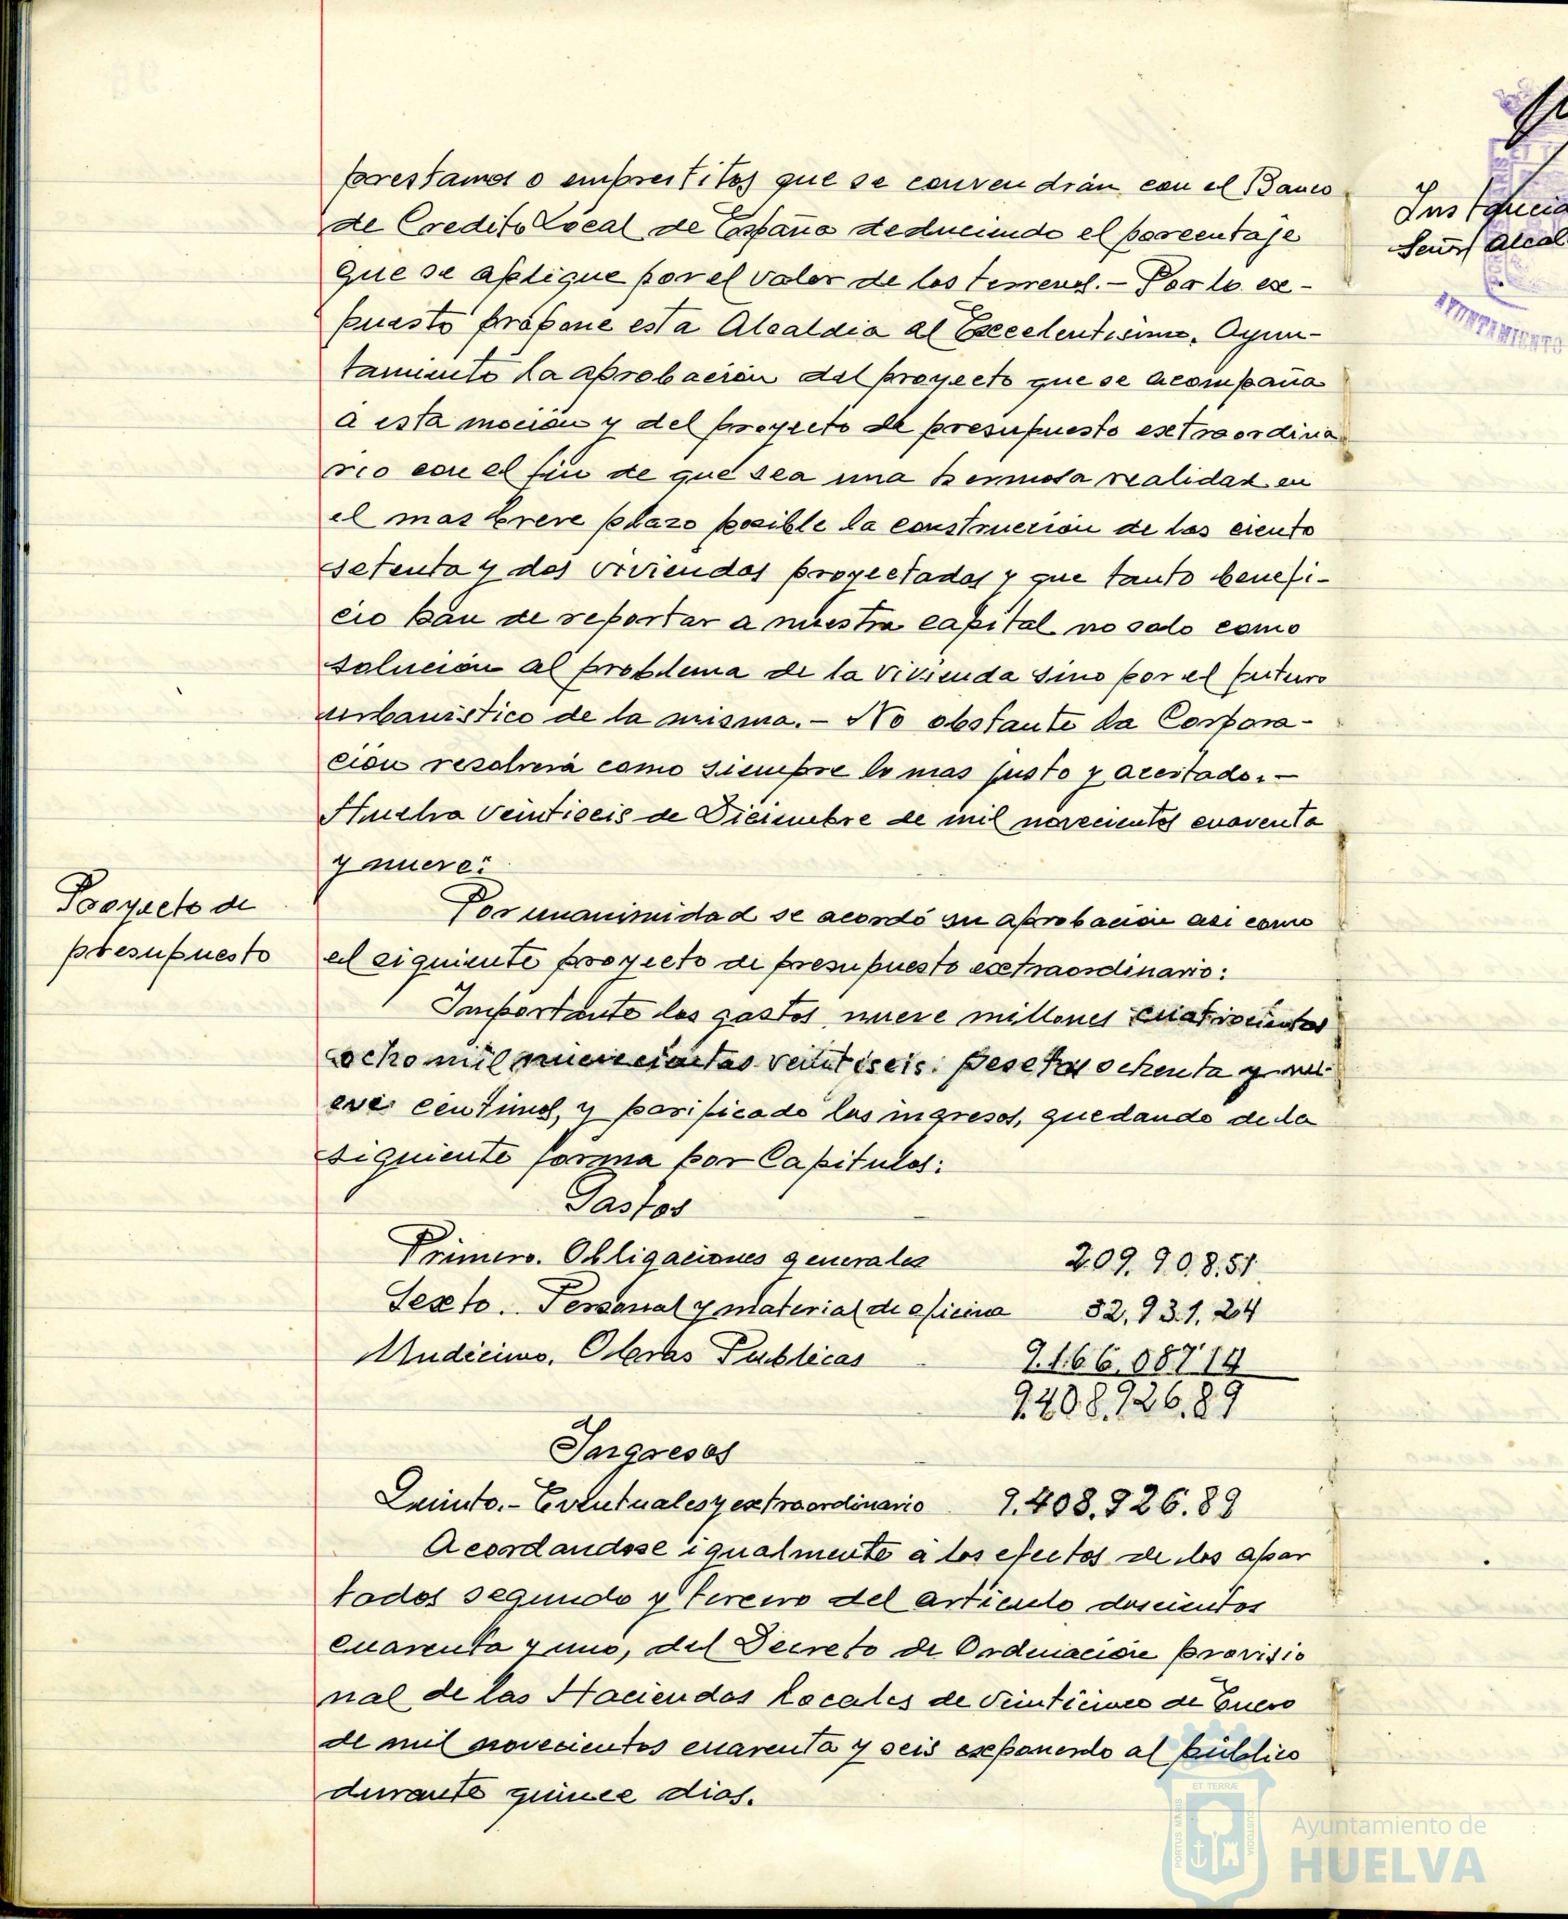 prestamos o emprestitos que se convendrán con el Banco
de Credito Local de España deduciendo el porcentaje
que se aplique por el valor de los terrenos.- Por lo ex-
puesto propone esta Alcaldia al Excelentisimo. Ayun-
tamiento la aprobación del proyecto que se acompaña
a esta moción y del proyecto de presupuesto extraordina
rio con el fin de que sea una hermosa realidad en
el mas breve plazo posible la construcción de las ciento
setenta y dos viviendas proyectadas y que tanto benefi-
cio han de reportar a nuestra capital no solo como
solución al problema de la vivienda sino por el futuro
urbanistico de la misma.- No obstante la Corpora-
ción resolverá como siempre lo mas justo y acertado.-
Huelva Veintiseis de Diciembre de mil novecientos cuarenta
y nueve:
Proyecto de
presupuesto
Por unanimidad se acordó su aprobación asi como
el siguiente proyecto de presupuesto extraordinario:
Importante los gastos nueve millones cuatrocientas
ocho mil novecientas veintiseis. pesetas ochenta y nu-
eve centimos, y parificado los ingresos, quedando de la
siguiente forma por Capitulos:
Gastos
Primero. Obligaciones generales 209.908.51
Sexto. Personal y material de oficina 32.931.24
Undécimo. Obras Publicas 9.166.087 14
9.408.926.89
Ingresos
Quinto.- Eventuales y extraordinario 9.408.926.89
Acordandose igualmente a los efectos de los apar
tados segundo y tercero del articulo doscientos
cuarenta y uno, del Decreto de Ordenación provisio
nal de las Haciendas Locales de Veinticinco de Enero
de mil novecientos cuarenta y seis exponendo al público
durante quince dias.
Instancia
Señor Alcal
AYUNTAMIENTO
ET TERRÆ
PORTUS MARIS
CUSTODIA
Ayuntamiento de
HUELVA